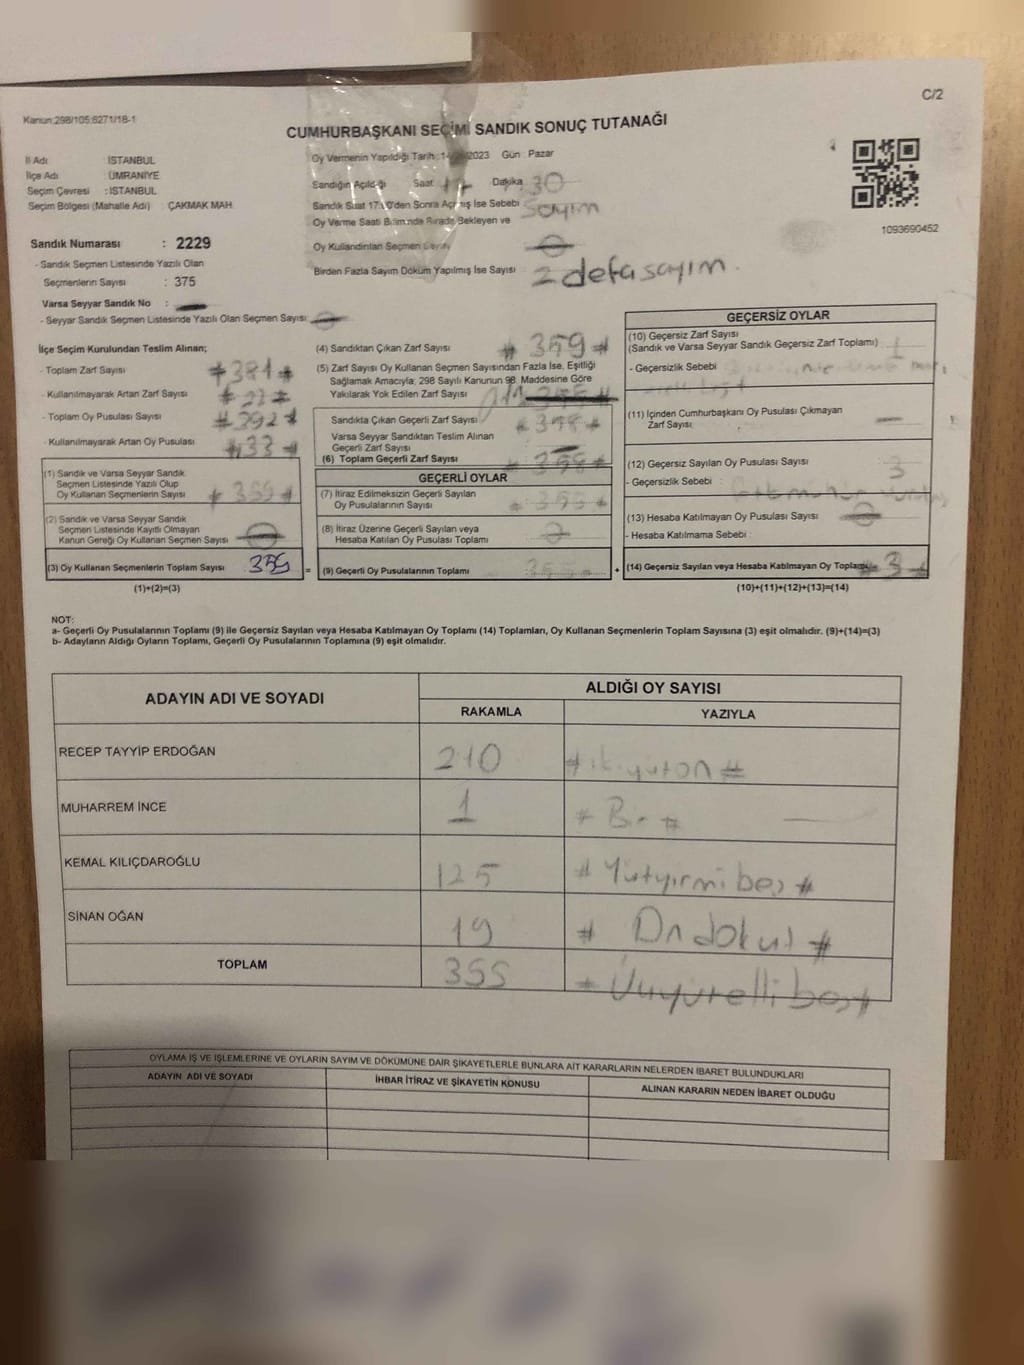 C/2
Kanun:298/105;6271/18-1
CUMHURBAŞKANI SEÇİMİ SANDIK SONUÇ TUTANAĞI
İl Adı : İSTANBUL
İlçe Adı : ÜMRANİYE
Seçim Çevresi : İSTANBUL
Seçim Bölgesi (Mahalle Adı) : ÇAKMAK MAH.
Sandık Numarası : 2229
- Sandık Seçmen Listesinde Yazılı Olan
Seçmenlerin Sayısı : 375
Varsa Seyyar Sandık No :
- Seyyar Sandık Seçmen Listesinde Yazılı Olan Seçmen Sayısı:
Oy Vermenin Yapıldığı Tarih : 2023 Gün : Pazar
Sandığın Açıldığı Saat : 17 Dakika : 30
Sandık Saat 17:00'den Sonra Açılmış İse Sebebi : Sayım
Oy Verme Saati Bitiminde Sırada Bekleyen ve
Oy Kullandırılan Seçmen Sayısı
Birden Fazla Sayım Döküm Yapılmış İse Sayısı : 2 defa sayım.
1093690452
İlçe Seçim Kurulundan Teslim Alınan;
- Toplam Zarf Sayısı #381#
- Kullanılmayarak Artan Zarf Sayısı
- Toplam Oy Pusulası Sayısı #392#
- Kullanılmayarak Artan Oy Pusulası #33#
(1) Sandık ve Varsa Seyyar Sandık
Seçmen Listesinde Yazılı Olup
Oy Kullanan Seçmenlerin Sayısı # 359 #
(2) Sandık ve Varsa Seyyar Sandık
Seçmen Listesinde Kayıtlı Olmayan
Kanun Gereği Oy Kullanan Seçmen Sayısı
(3) Oy Kullanan Seçmenlerin Toplam Sayısı 359 =
(1)+(2)=(3)
(4) Sandıktan Çıkan Zarf Sayısı # 359 #
(5) Zarf Sayısı Oy Kullanan Seçmen Sayısından Fazla İse, Eşitliği
Sağlamak Amacıyla, 298 Sayılı Kanunun 98. Maddesine Göre
Yakılarak Yok Edilen Zarf Sayısı
Sandıkta Çıkan Geçerli Zarf Sayısı # 358 #
Varsa Seyyar Sandıktan Teslim Alınan
Geçerli Zarf Sayısı
(6) Toplam Geçerli Zarf Sayısı # 358 #
GEÇERLİ OYLAR
(7) İtiraz Edilmeksizin Geçerli Sayılan
Oy Pusulalarının Sayısı # 355 #
(8) İtiraz Üzerine Geçerli Sayılan veya
Hesaba Katılan Oy Pusulası Toplamı
(9) Geçerli Oy Pusulalarının Toplamı 355 +
GEÇERSİZ OYLAR
(10) Geçersiz Zarf Sayısı
(Sandık ve Varsa Seyyar Sandık Geçersiz Zarf Toplamı) : 1
- Geçersizlik Sebebi :
(11) İçinden Cumhurbaşkanı Oy Pusulası Çıkmayan
Zarf Sayısı
(12) Geçersiz Sayılan Oy Pusulası Sayısı : 3
- Geçersizlik Sebebi :
(13) Hesaba Katılmayan Oy Pusulası Sayısı
- Hesaba Katılmama Sebebi :
(14) Geçersiz Sayılan veya Hesaba Katılmayan Oy Toplamı # 3 #
(10)+(11)+(12)+(13)=(14)
NOT:
a- Geçerli Oy Pusulalarının Toplamı (9) ile Geçersiz Sayılan veya Hesaba Katılmayan Oy Toplamı (14) Toplamları, Oy Kullanan Seçmenlerin Toplam Sayısına (3) eşit olmalıdır. (9)+(14)=(3)
b- Adayların Aldığı Oyların Toplamı, Geçerli Oy Pusulalarının Toplamına (9) eşit olmalıdır.
ADAYIN ADI VE SOYADI ALDIĞI OY SAYISI
RAKAMLA YAZIYLA
RECEP TAYYİP ERDOĞAN 210 # ikiyüzon #
MUHARREM İNCE 1 # Bir #
KEMAL KILIÇDAROĞLU 125 # Yüzyirmibeş #
SİNAN OĞAN 19 # Ondokuz #
TOPLAM 355 # Üçyüzellibeş #
OYLAMA İŞ VE İŞLEMLERİNE VE OYLARIN SAYIM VE DÖKÜMÜNE DAİR ŞİKAYETLERLE BUNLARA AİT KARARLARIN NELERDEN İBARET BULUNDUKLARI
ADAYIN ADI VE SOYADI İHBAR İTİRAZ VE ŞİKAYETİN KONUSU ALINAN KARARIN NEDEN İBARET OLDUĞU